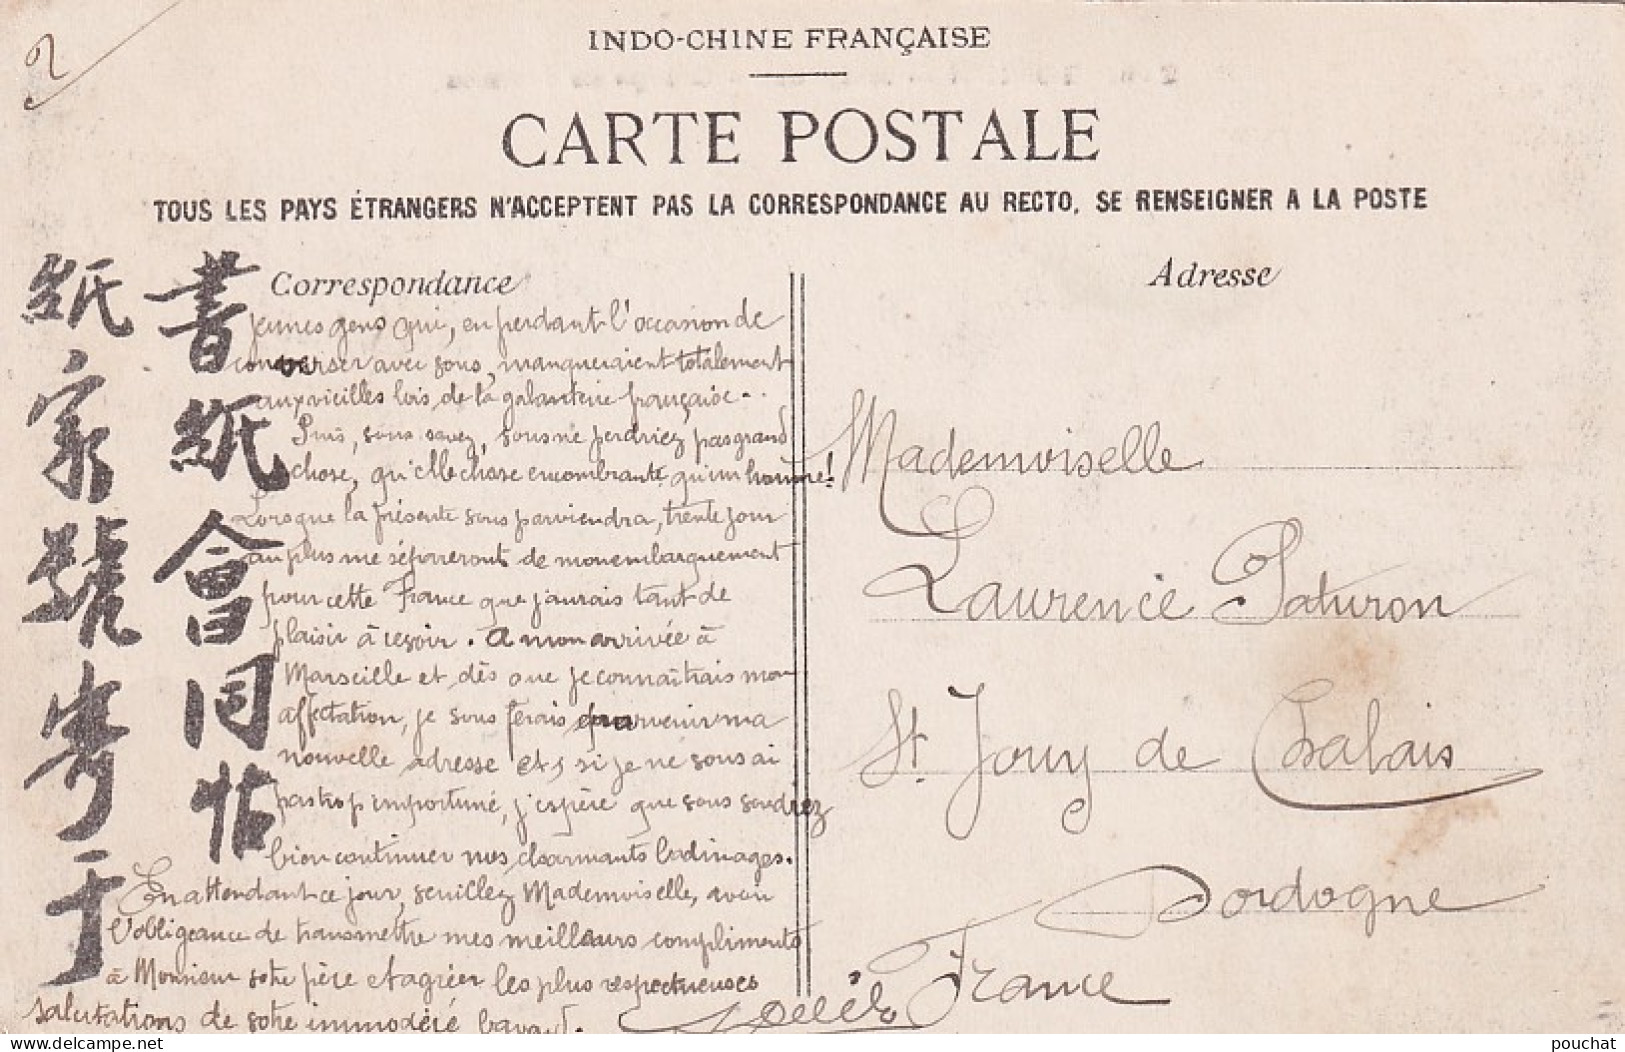 2
INDO-CHINE FRANÇAISE
CARTE POSTALE
TOUS LES PAYS ÉTRANGERS N'ACCEPTENT PAS LA CORRESPONDANCE AU RECTO, SE RENSEIGNER A LA POSTE
Correspondance
jeunes gens qui, en perdant l'occasion de
converser avec vous, manqueraient totalement
aux vieilles lois de la galanterie française..
Puis, vous savez, vous ne perdriez pas grand
chose, quelle chose encombrante qu'un homme!
Lorsque la présente vous parviendra, trente jours
au plus me sépareront de mon embarquement
pour cette France que j'aurais tant de
plaisir à revoir. A mon arrivée à
Marseille et dès que je connaîtrais mon
affectation, je vous ferais parvenir ma
nouvelle adresse et, si je ne vous ai
pas trop importuné, j'espère que vous voudrez
bien continuer nos charmants badinages.
En attendant ce jour, veuillez Mademoiselle, avoir
l'obligeance de transmettre mes meilleurs compliments
à Monsieur votre père et agréer les plus respectueuses
salutations de votre immodéré bavard.
書紙會同帖
紙家號寄于
Adresse
Mademoiselle
Laurence Paturon
St Jouy de Chalais
Dordogne
France
pouchat